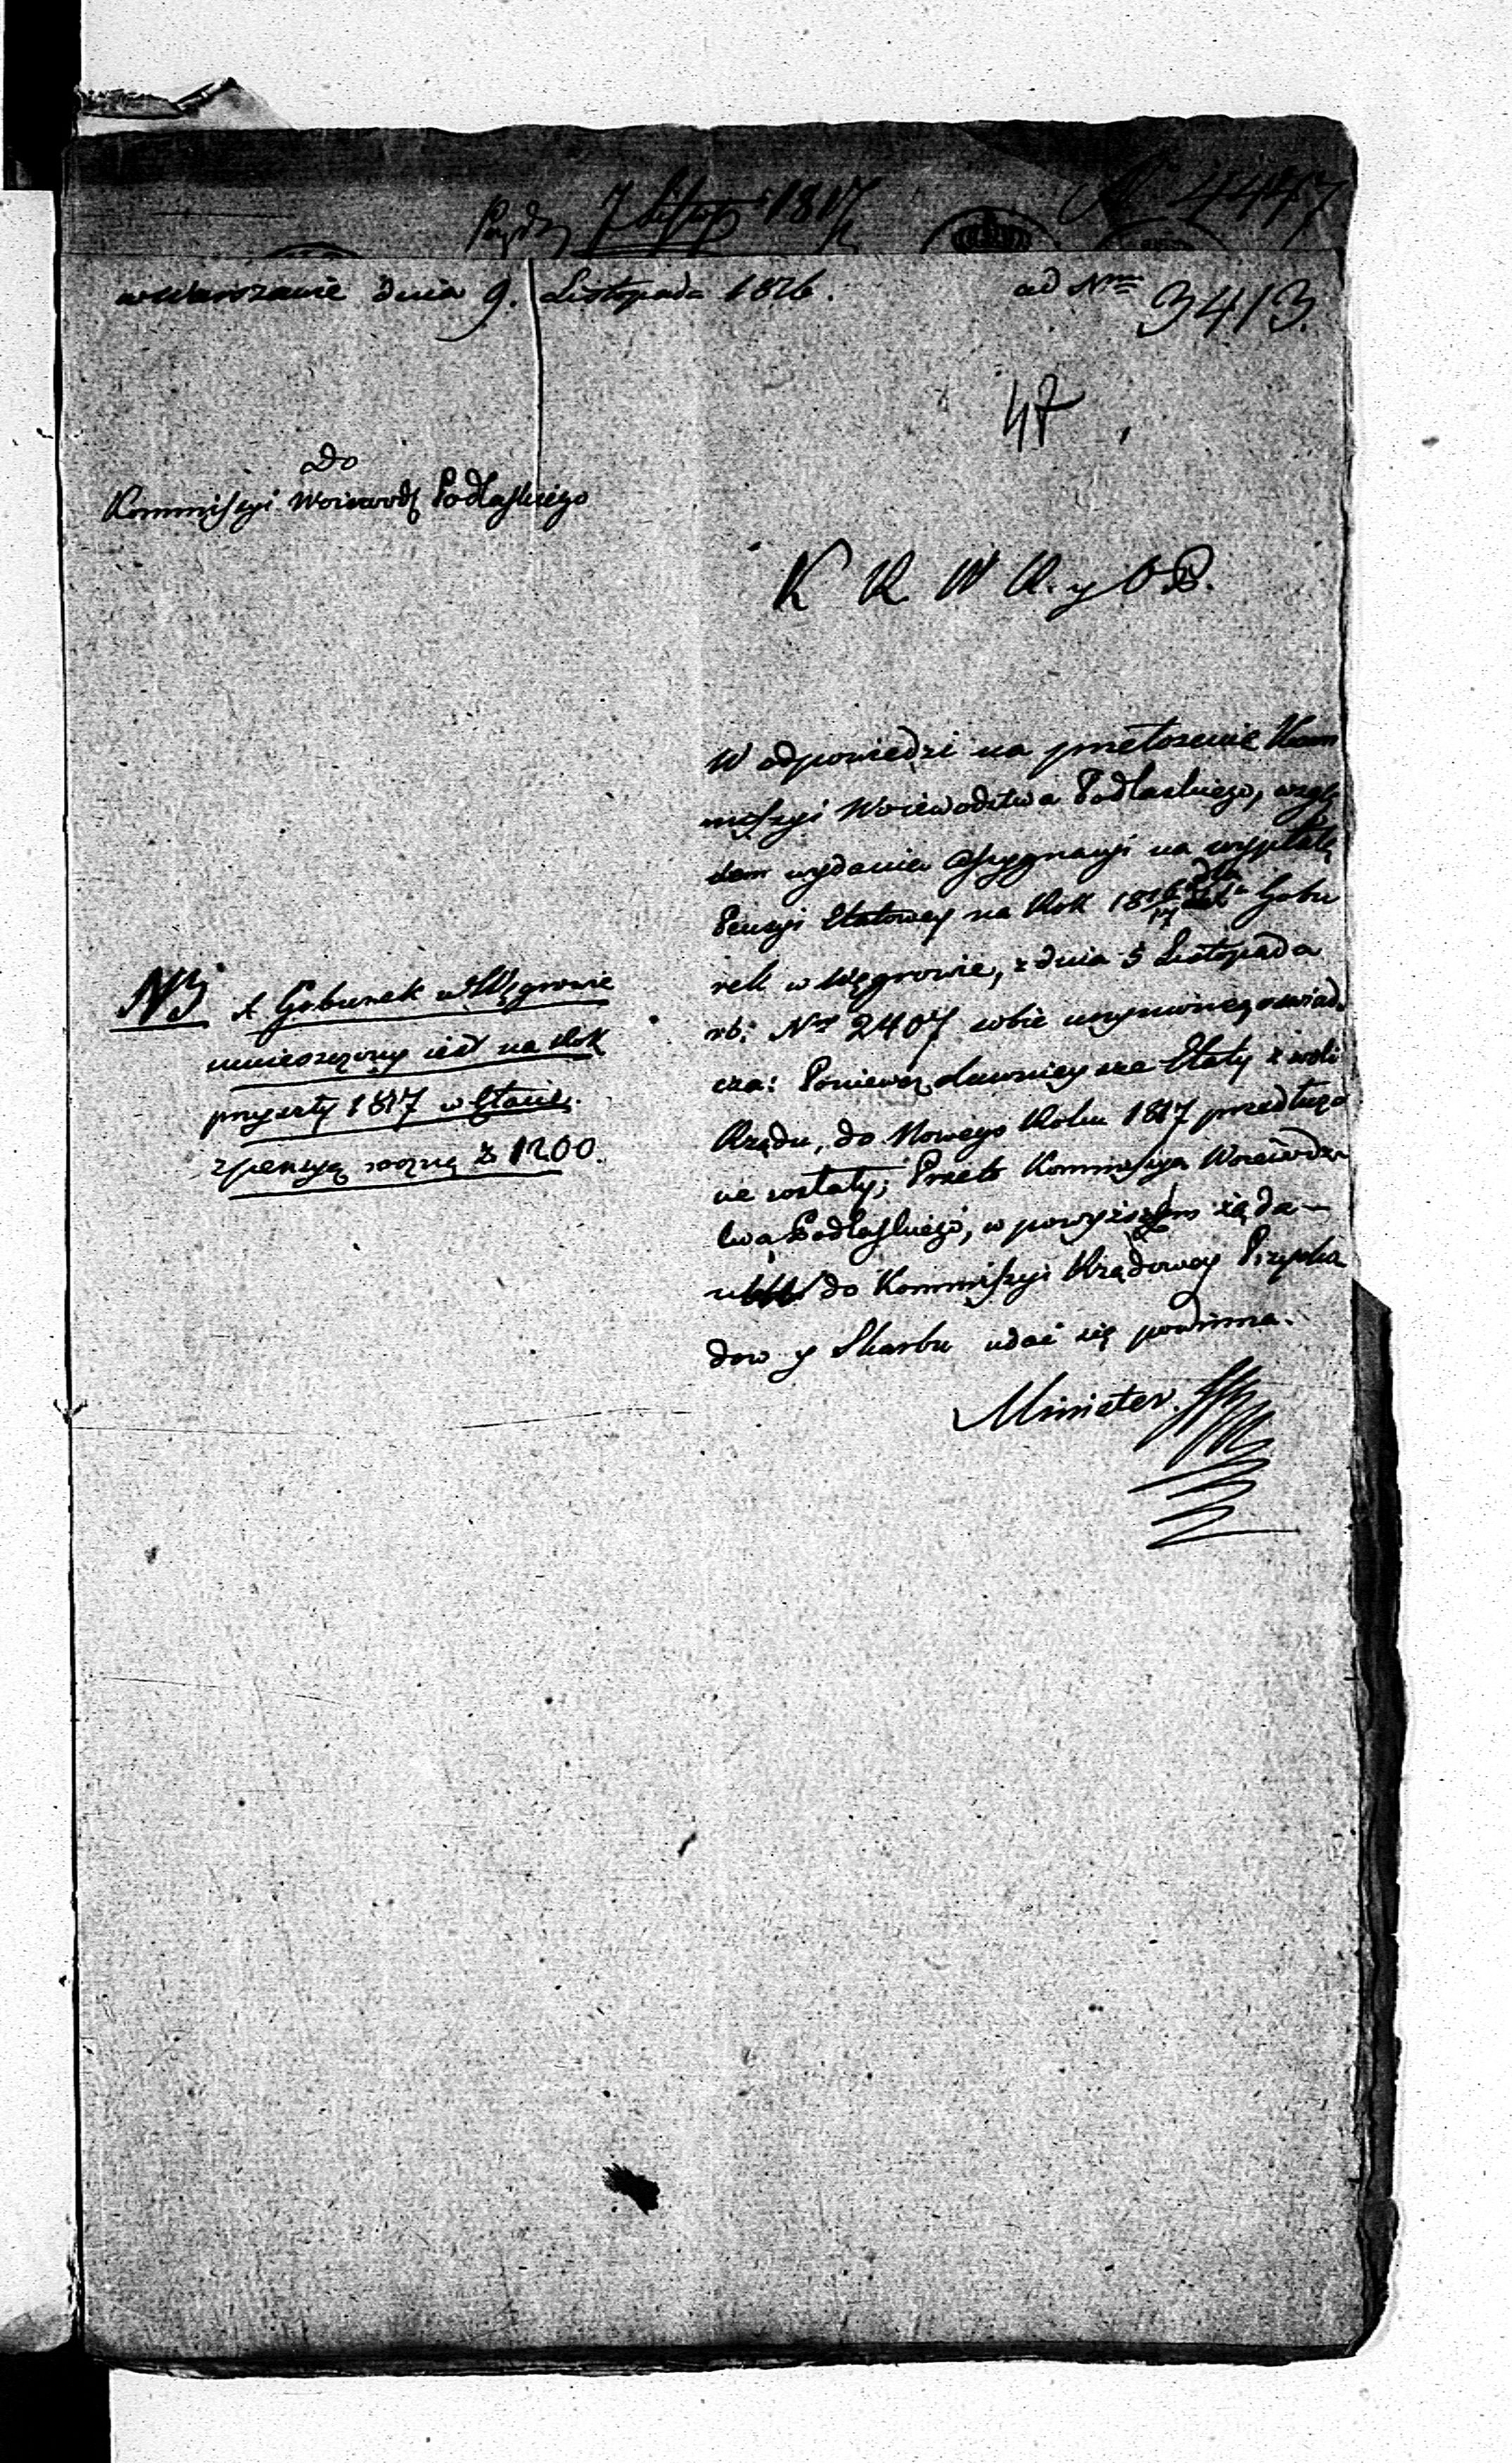 7 Listop 1817
N 4447
w Warszawie dnia 9. Listopada 1816.
ad Nrm 3413.
47
Do
Kommissyi Woiewodz Podlaskiego
K R W R. y O P.
W odpowiedzi na przełożenie Kom
missyi Woiewodztwa Podlaskiego, wzglę
dem wydania Assygnacyi na wypłatę
Pensyi Etatowey na Rok 1816/17 dla Gabu
rek w Węgrowie, z dnia 5 Listopada
rb: Nro 2407 sobie uczynione, oswiad
cza: Ponieważ dawnieysze Etaty z woli
Rządu, do Nowego Roku 1817 przedłużo
ne zostały; Przeto Kommissya Woiewodz
twa Podlaskiego, w powyższem żąda-
niu do Kommissyi Rządowey Przycho
dow y Skarbu udać się powinna.
Minister
NB X Gaburek w Węgrowie
umieszczony iest na Rok
przyszły 1817 w Etacie.
z pensyą roczną Z 1200.